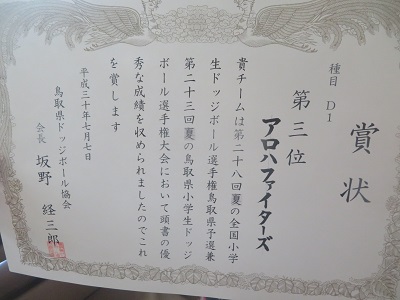 賞状
種目 D1
第三位
アロハファイターズ
貴チームは第二十八回夏の全国小学
生ドッジボール選手権鳥取県予選兼
第二十三回夏の鳥取県小学生ドッジ
ボール選手権大会において頭書の優
秀な成績を収められましたのでこれ
を賞します
平成三十年七月七日
鳥取県ドッジボール協会
会長 坂野 経三郎